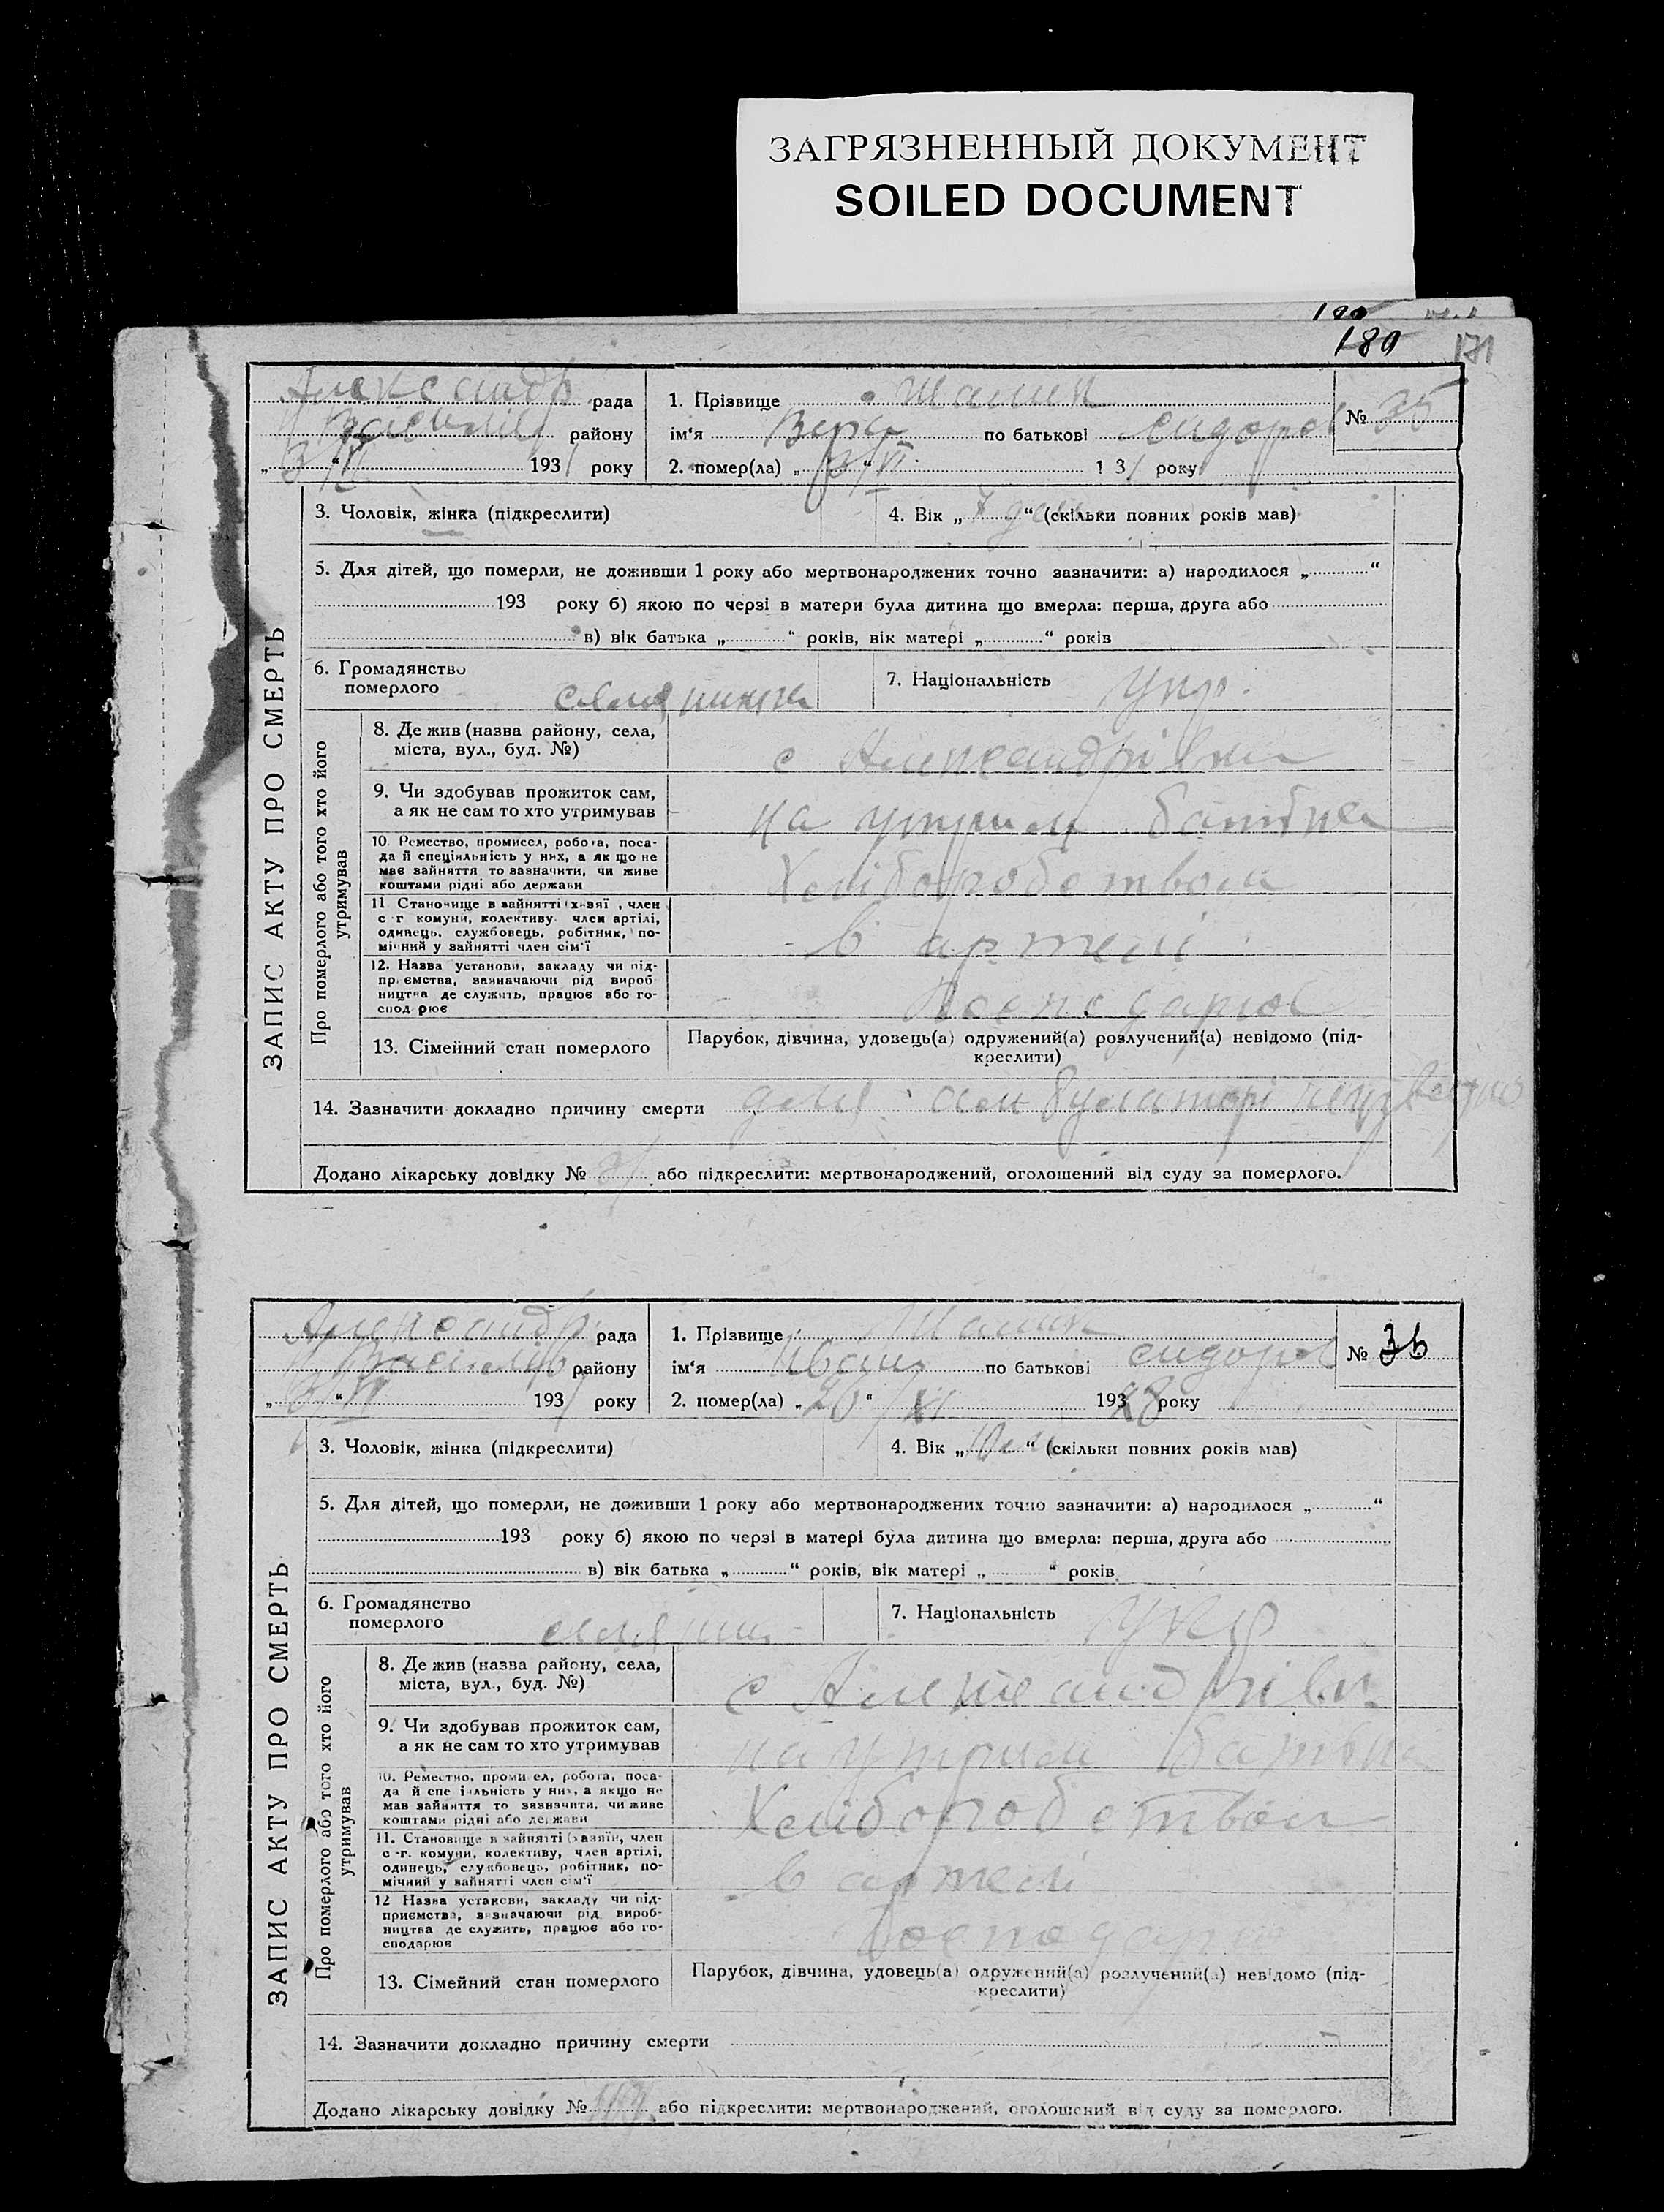 ЗАГРЯЗНЕННЫЙ ДОКУМЕНТ
SOILED DOCUMENT
180 171
ЗАПИС АКТУ ПРО СМЕРТЬ
Александр. рада
района
3/VI 1931 року
1. Прізвище Шамин
ім‘я Вера по батькові Сидоров
2. помер(ла) „3/VI“ 1 31 року
№ 35
3. Чоловік, жінка (підкреслити)
4. Вік „7 “ (скільки повних років мав)
5. Для дітей, що померли, не доживши 1 року або мертвонароджених точно зазначити: а) народилося „ “
193 року б) якою по черзі в матери була дитина що вмерла: перша, друга або
в) вік батька „ “ років, вік матері „ “ років
6. Громадянство
померлого селянинка
7. Національність Укр.
Про померлого або того хто його
утримував
8. Де жив (назва району, села,
міста, вул., буд. №)
с Александрівка
9. Чи здобував прожиток сам,
а як не сам то хто утримував
на утрим батька
10. Ремество, промисел, робота, поса-
да й спеціяльність у них, а як що не
має зайняття то зазначити, чи живе
коштами рідні або держави
Хліборобством
11. Становище в зайнятті (хазяї, член
с-г комуни, колективу член артілі,
одинець, службовець, робітник, по-
мічний у зайнятті член сім‘ї
в артелі
12. Назва установи, закладу чи під-
приємства, зазначаючи рід вироб
ництва де служить, працює або го-
спод рює
Господарює
13. Сімейний стан померлого
Парубок, дівчина, удовець(а) одружений(а) розлучений(а) невідомо (під-
креслити)
14. Зазначити докладно причину смерти
Додано лікарську довідку № або підкреслити: мертвонароджений, оголошений від суду за померлого.
ЗАПИС АКТУ ПРО СМЕРТЬ
Александр. рада
району
3/VI 1931 року
1. Прізвище Шамин
ім‘я Иван по батькові Сидоров
2. помер(ла) „26“ 28 року
№ 36
3. Чоловік, жінка (підкреслити)
4. Вік „10 “ (скільки повних років мав)
5. Для дітей, що померли, не доживши 1 року або мертвонароджених точно зазначити: а) народилося „ “
193 року б) якою по черзі в матері була дитина що вмерла: перша, друга або
в) вік батька „ “ років, вік матері „ “ років
6. Громадянство
померлого селянин
7. Національність Укр
Про померлого або того хто його
утримував
8. Де жив (назва району, села,
міста, вул., буд. №)
с Александрівк
9. Чи здобував прожиток сам,
а як не сам то хто утримував
на утрим батька
10. Ремество, проми ел, робота, поса-
да й спеціяльність у них, а якщо не
мав зайняття то зазначити, чи живе
коштами рідні або держави
Хліборобством
11. Становище в зайнятті (хазяїн, член
с-г. комуни, колективу, член артілі,
одинець, службовець, робітник, по-
мічний у зайнятті член сім‘ї
в артелі
12 Назва установи, закладу чи під-
приємства, зазначаючи рід вироб-
ництва де служить, працює або го-
сподарює
Господарю
13. Сімейний стан померлого
Парубок, дівчина, удовець(а) одружений(а) розлучений(а) невідомо (під-
креслити)
14. Зазначити докладно причину смерти
Додано лікарську довідку № або підкреслити: мертвонароджений, оголошений від суду за померлого.